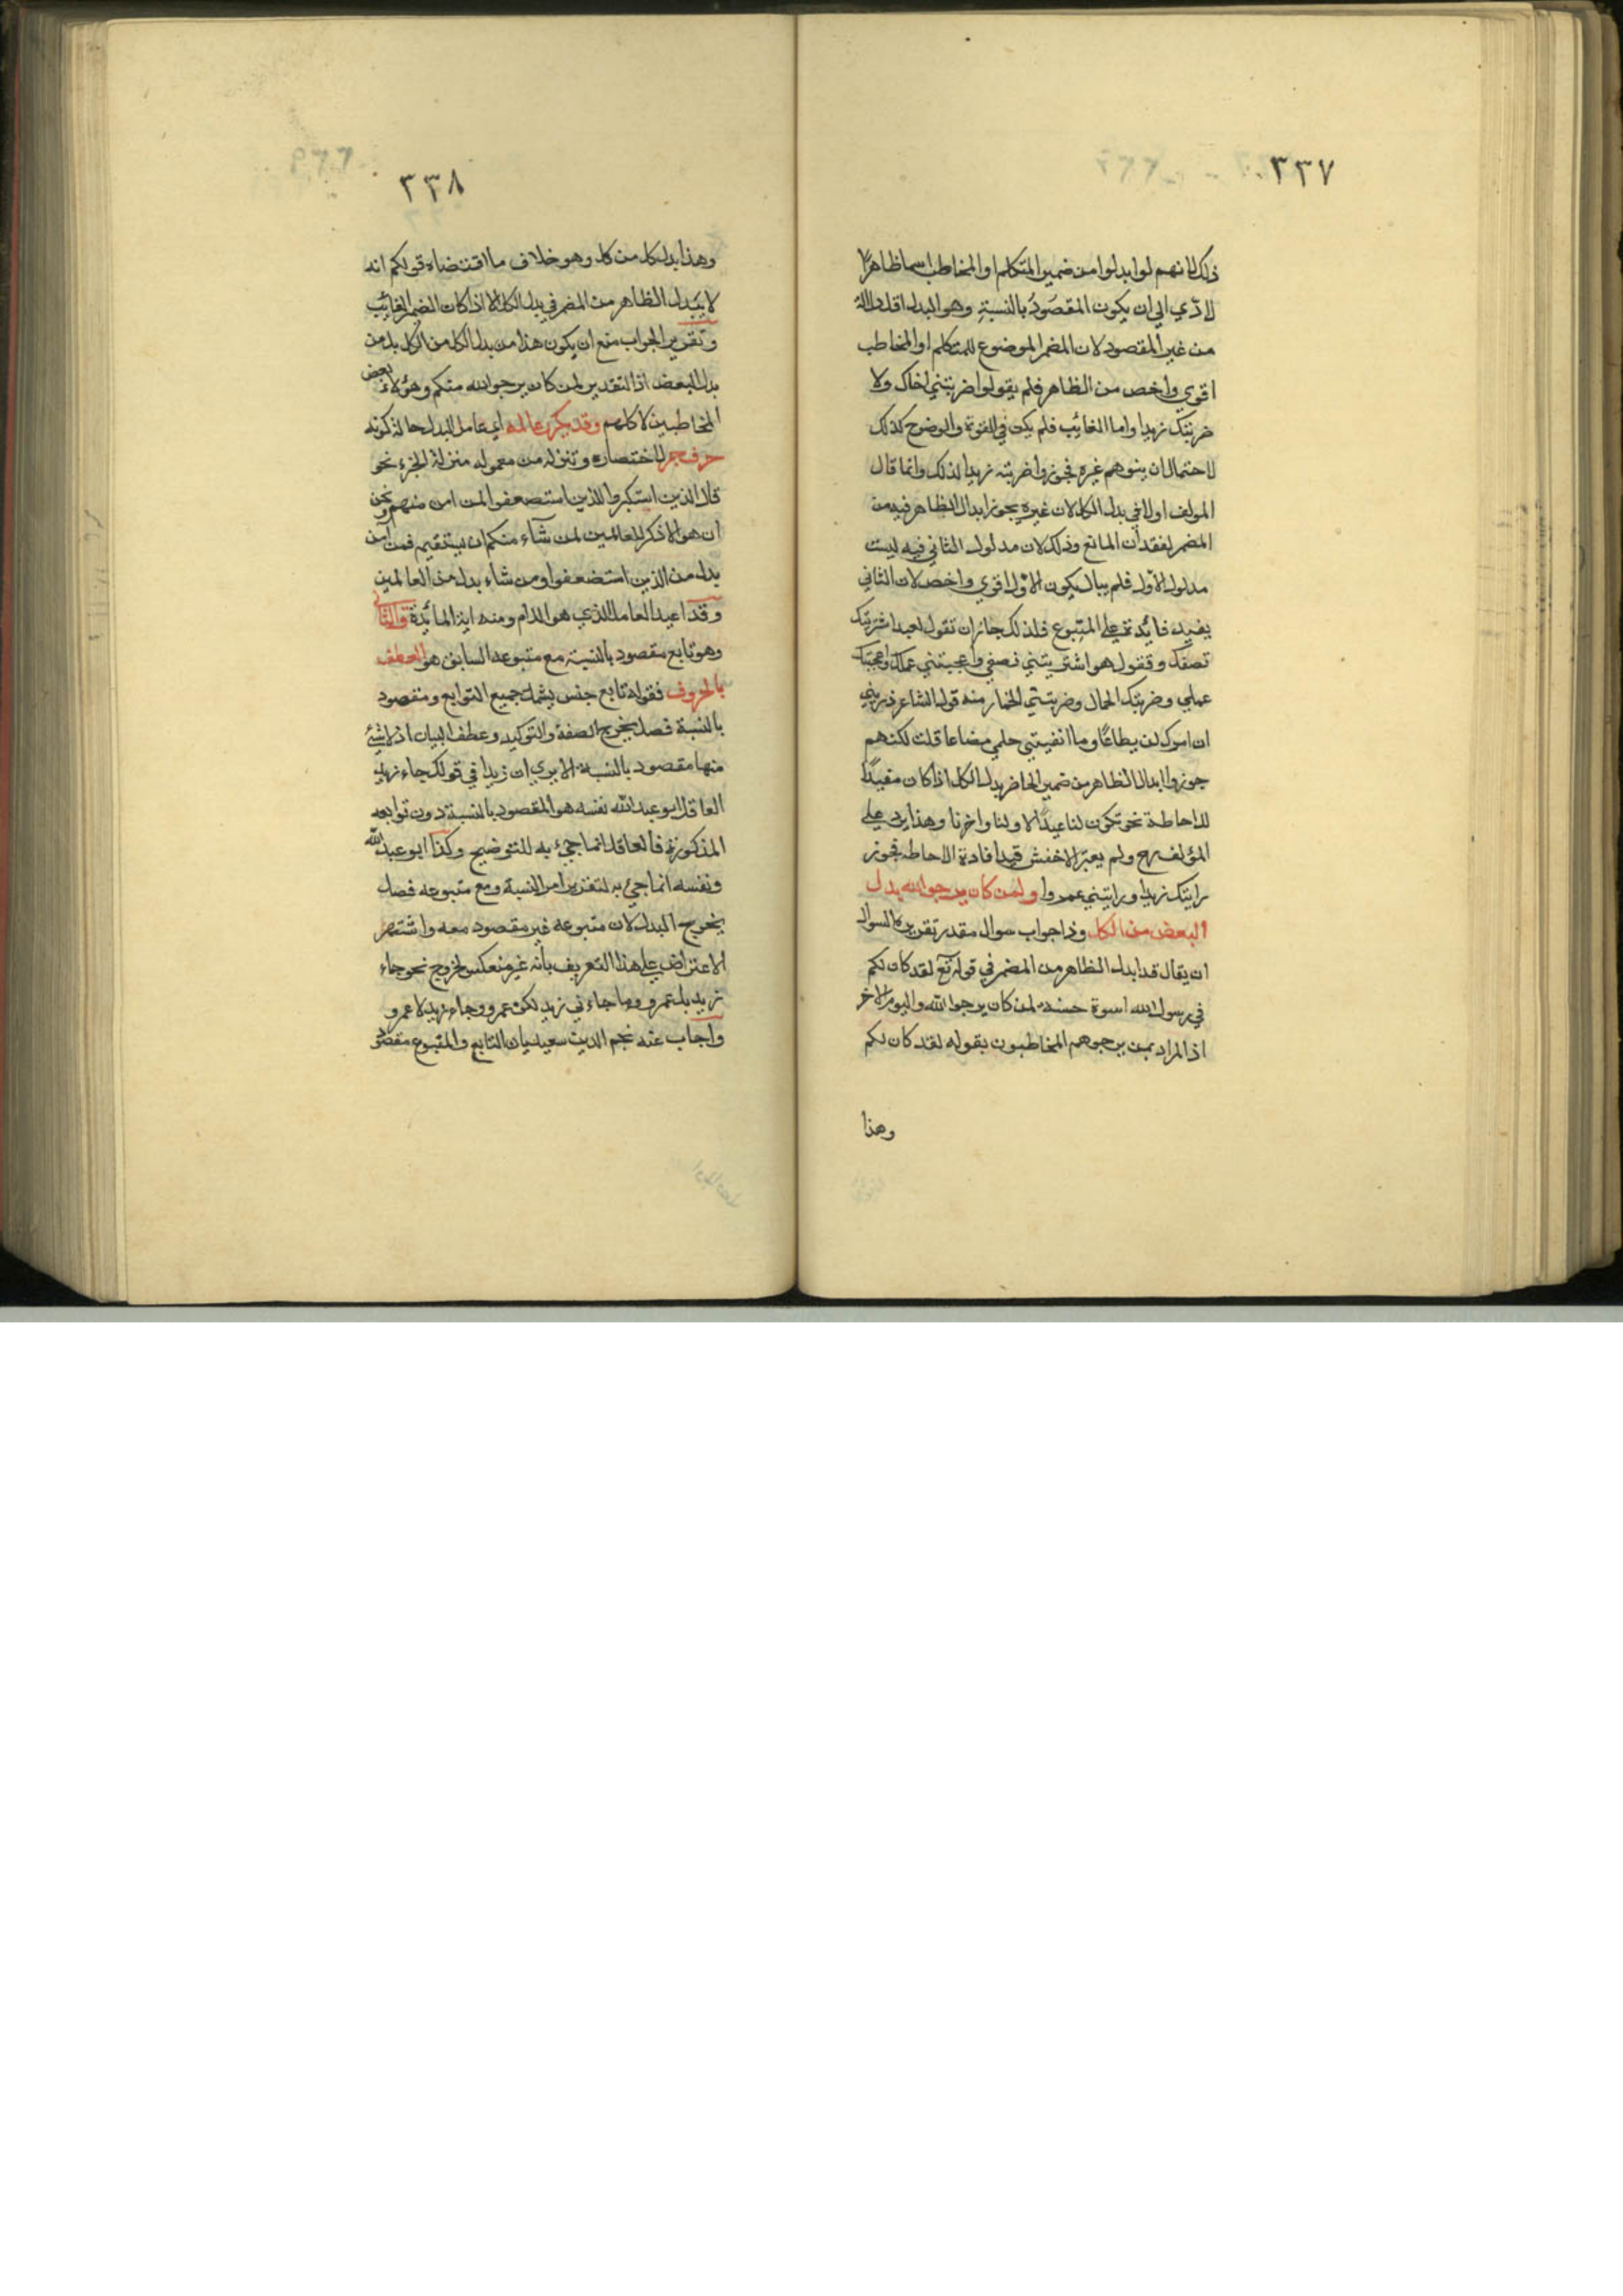 ٣٣٧
ذلك لانهم لو ابدلوا من ضمير المتكلم او المخاطب اسما ظاهرًا
لادّي الي ان يكون المقصود بالنسبة وهو البدل اقل دلالة
من غير المقصود لان المضمر الموضوع للمتكلم او المخاطب
اقوي واخص من الظاهر فلم يقولوا ضربتني اخاك ولا
ضربتك زيدا واما الغائب فلم يكن في القوة والوضوح كذلك
لاحتمال ان يتوهم غيره فجوزوا ضربته زيدا لذلك وانما قال
المولف اولا في بدل الكل لان غيره يجوز ابدال الظاهر فيه من
المضمر لفقدان المانع وذلك لان مدلول الثاني فيه ليست
مدلول الاول فلم يبال بكون الاول اقوي واخص لان الثاني
يفيد فائدة علي المتبوع فلذلك جاز ان تقول لعبد اشتريتك
نصفك وتقول هو اشتريتني نصفي واعجبتني عملك واعجبتك
عملي وضربتك الحمال وضربتني الحمار منه قول الشاعر ذريني
ان امرك لن يطاعًا وما الفيتني حلمي مضاعا قلت لكنهم
جوزوا ابدال الظاهر من ضمير الحاضر بدل الكل اذا كان مفيدًا
للاحاطة نحو تكون لنا عيدًا لاولنا واخرنا وهذا يرد علي
المؤلف رح ولم يعتبر الاخفش قيد افادة الاحاطه فجوز
رايتك زيدا ورايتني عمروا ولمن كان يرجوا الله بدل
البعض من الكل وذا جواب سوال مقدر تقرير السوال
ان يقال قد ابدل الظاهر من المضمر في قوله تع لقد كان لكم
في رسول الله اسوة حسنة لمن كان يرجوا الله واليوم الاخر
اذ المراد بمن يرجو هم المخاطبون بقوله لقد كان لكم
وهذا
٣٣٨
وهذا بدل كل من كل وهو خلاف ما اقتضاه قولكم انه
لا يبدل الظاهر من المضمر في بدل الكل الا اذا كان الضمير الغائب
وتقرير الجواب منع ان يكون هذا من بدل الكل من الكل بل من
بدل البعض اذ التقدير لمن كان يرجو الله منكم وهؤلاء بعض
المخاطبين لا كلهم وقد يكرر عامله اي عامل البدل حالة كونه
حرف جر لاختصاره وتنزله من معموله منزلة الجزء نحو
قال الذين استكبروا للذين استضعفوا لمن امن منهم ونحن
ان هو الا ذكر للعالمين لمن شآء منكم ان يستقيم فمن آمن
بدل من الذين استضعفوا ومن شاء بدل من العالمين
وقد اعيد العامل الذي هو اللام ومنه اية المائدة والثاني
وهو تابع مقصود بالنسبة مع متبوعه السابق هو العطف
بالحروف فقوله تابع جنس يشمل جميع التوابع ومقصود
بالنسبة فصل يخرج الصفة والتوكيد وعطف البيان اذ لا شئ
منها مقصود بالنسبة الا يري ان زيدا في قولك جاء زيد
العاقل ابو عبد الله نفسه هو المقصود بالنسبة دون توابعه
المذكورة فالعاقل انما جئ به للتوضيح وكذا ابو عبد الله
ونفسه انما جئ به لتقرير امر النسبة ومع متبوعه فصل
يخرج البدل لان متبوعه غير مقصود معه واشتهر
الاعتراض علي هذا التعريف بأنه غير منعكس لخروج نحو جاء
زيد بل عمرو وما جاءني زيد لكن عمرو وجاء زيد لا عمرو
واجاب عنه نجم الدين سعيد بان التابع والمتبوع مقصود